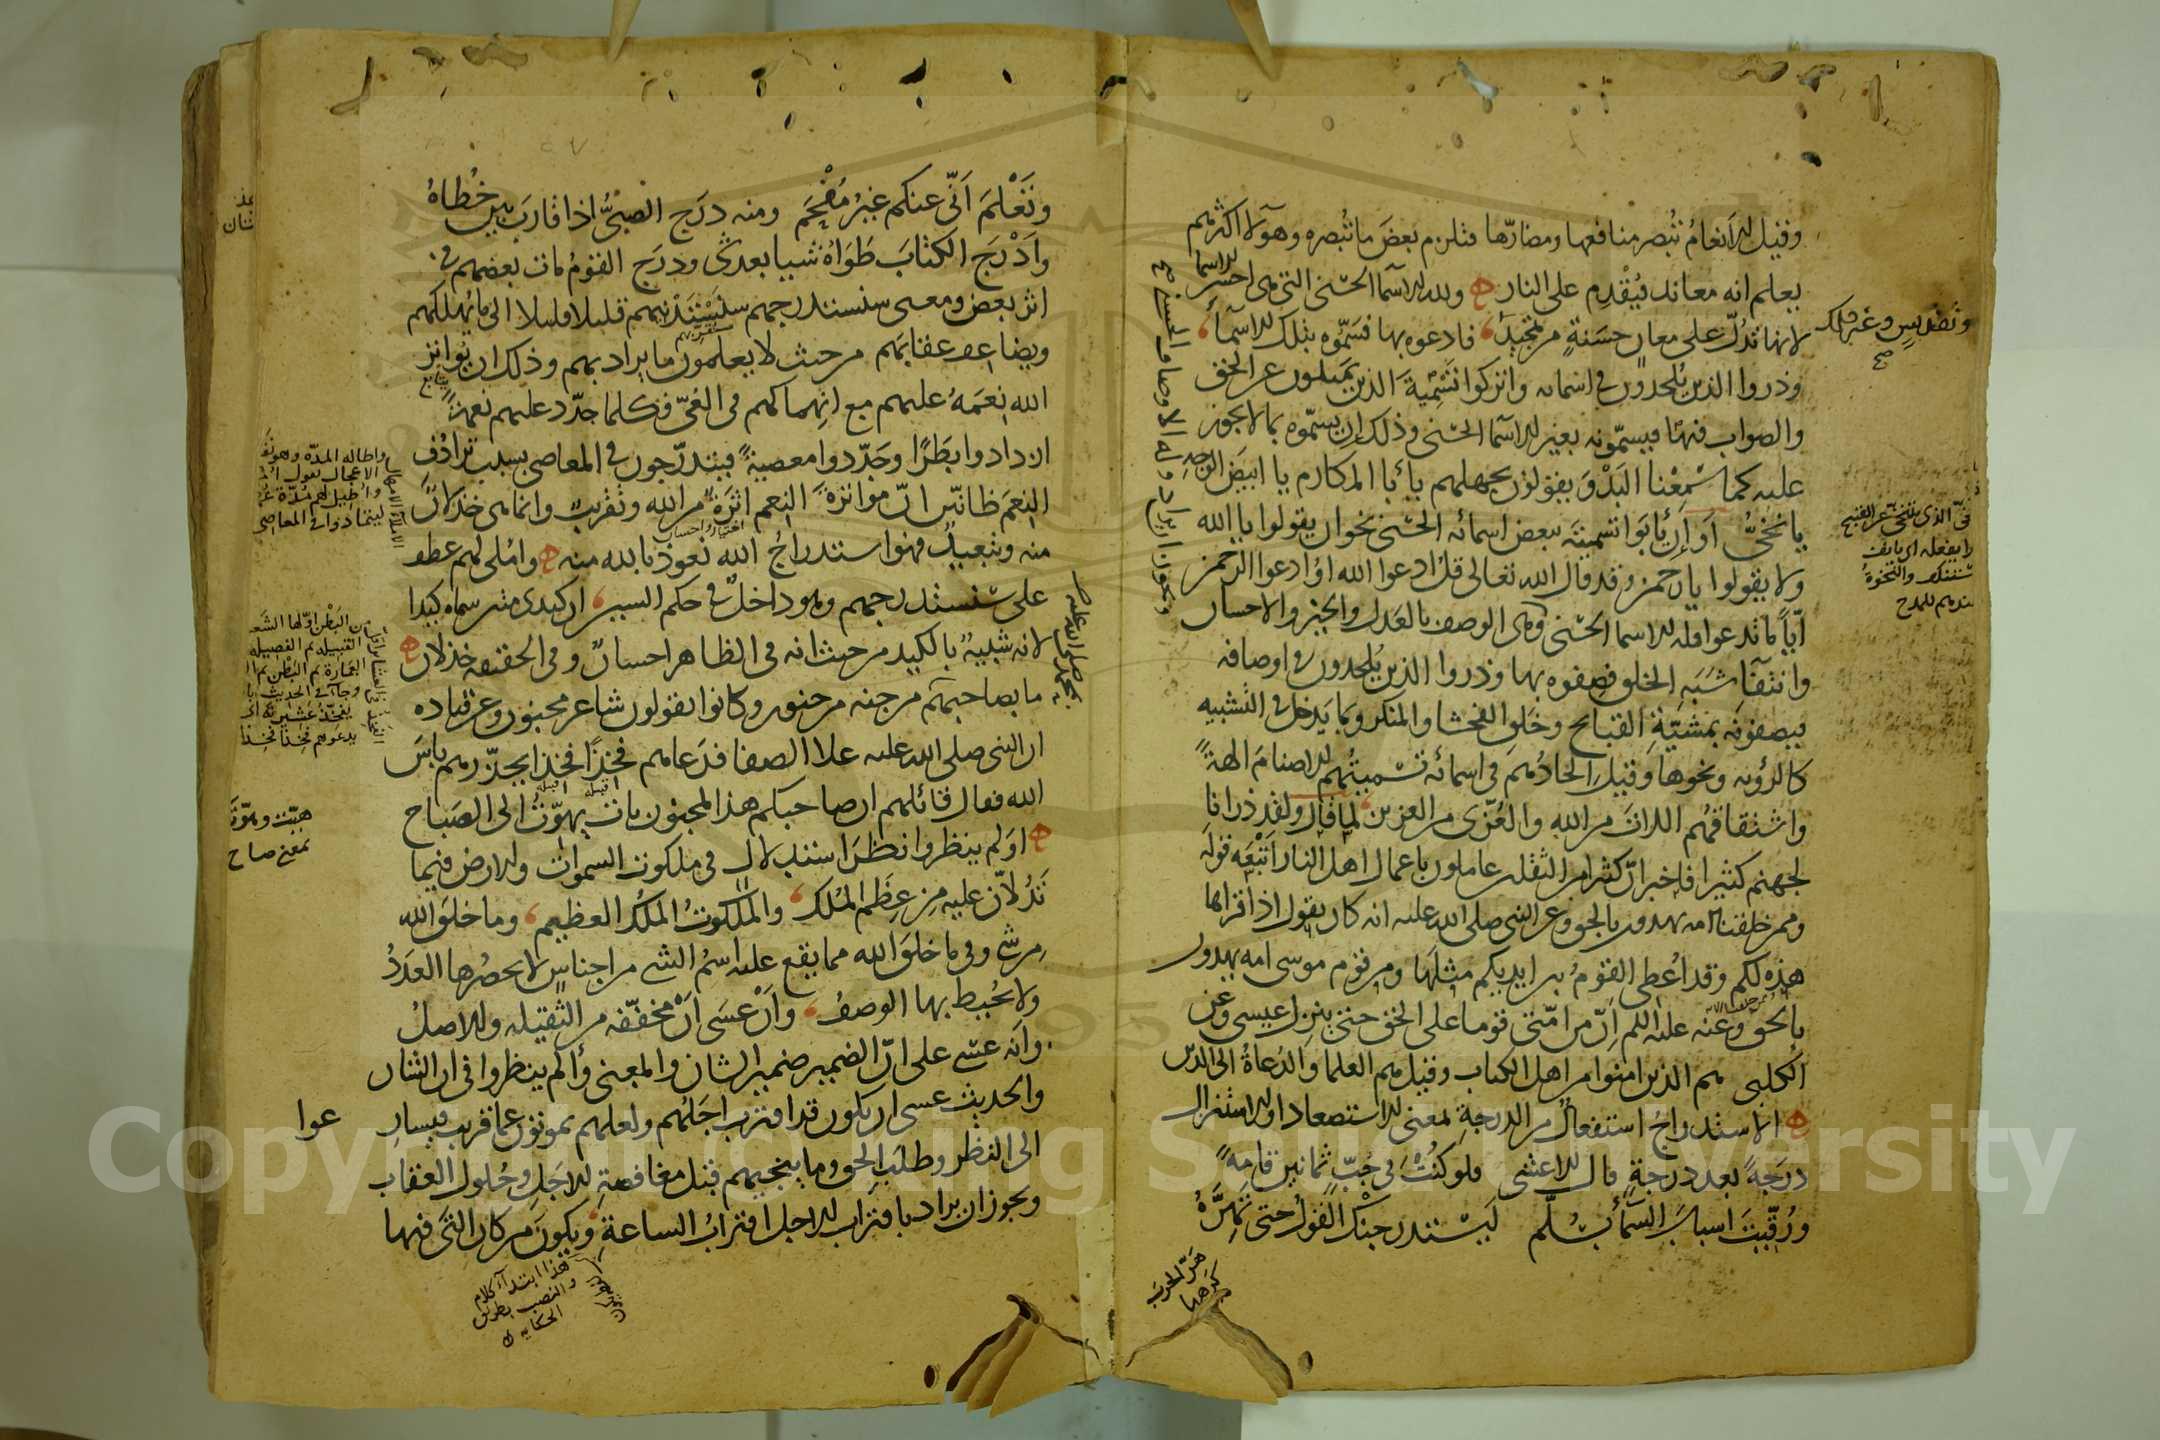 وقيل الانعام تبصر منافعها ومضارها فتلزم بعض ما تبصره وهولا اكثرهم
يعلم انه معاند فيقدم على النار ولله الاسما الحسنى التى هى احسن الاسما
لانها تدل على معان حسنة من تمجيد فادعوه بها فسموه بتلك الاسما
وذروا الذين يلحدون فى اسمائه واتركوا تسمية الذين يميلون عن الحق
والصواب فيها فيسمونه بغير الاسما الحسنى وذلك ان يسموه بما لا يجوز
عليه كما سمعنا البدو يقولون بجهلهم يا ابا المكارم يا ابيض الوجه
يا نخى او ان يابوا تسميته ببعض اسمائه الحسنى نحو ان يقولوا يا الله
ولا يقولوا يا رحمن وقد قال الله تعالى قل ادعوا الله او ادعوا الرحمن
ايا ما تدعوا فله الاسما الحسنى وهى الوصف بالعدل والخير والاحسان
وانتفآ شبه الخلق فصفوه بها وذروا الذين يلحدون فى اوصافه
فيصفونه بمشية القبايح وخلق الفحشا والمنكر وبما يدخل فى التشبيه
كالرؤيه ونحوها وقيل الحادهم فى اسمائه تسميتهم الاصنام الهة
واشتقاقهم اللات من الله والعزى من العزيز لما قال ولقد ذرانا
لجهنم كثيرا فاخبر ان كثيرا من الثقلين عاملون باعمال اهل النار اتبعه قوله
وممن خلقنا امه يهدون بالحق وعن النبى صلى الله عليه انه كان يقول اذا قراها
هذه لكم وقد اعطى القوم بين ايديكم مثلها ومن قوم موسى امه يهدون
بالحق وعنه عليه السلم ان من امتى قوما على الحق حتى ينزل عيسى وعن
الكلبى هم الذين امنوا من اهل الكتاب وقيل هم العلما والدعاة الى الدين
الاستدراج استفعال من الدرجة بمعنى الاستصعاد او الاستنزال
درجة بعد درجة قال الاعشى فلو كنت فى جب ثمانين قامة
ورقيت اسباب السمآء بسلم ليستدرجنك القول حتى تهره
وتقديس وغير ذلك
صح
هر الحرب
كرهها
وتعلم انى عنكم غير مفحم ومنه درج الصبى اذا قارب بين خطاه
وادرج الكتاب طواه شيا بعد شى ودرج القوم مات بعضهم فى
اثر بعض ومعنى سنستدرجهم سنستدنيهم قليلا قليلا الى ما يهلكهم
ويضاعف عقابهم من حيث لا يعلمون ما يراد بهم وذلك ان يواتر
الله نعمه عليهم مع انهماكهم فى الغى فكلما جدد عليهم نعمة
ازدادوا بطرا وجددوا معصية فيتدرجون فى المعاصى بسبب ترادف
النعم ظانين ان مواترة النعم اثرة من الله وتقريب وانما هى خذلان
منه وتبعيد فهو استدراج الله نعوذ بالله منه واملى لهم عطف
على سنستدرجهم وهو داخل فى حكم السين ان كيدى متين سماه كيدا
لانه شبيه بالكيد من حيث انه فى الظاهر احسان وفى الحقيقه خذلان
ما بصاحبهم من جنه من جنون وكانوا يقولون شاعر مجنون وعن قتاده
ان النبى صلى الله عليه علا الصفا فدعاهم فخذا فخذا يحذرهم باس
الله فقال قائلهم ان صاحبكم هذا لمجنون بات يهوت الى الصباح
اولم ينظروا نظر استدلال فى ملكوت السموات والارض فيما
تدلان عليه من عظم الملك والملكوت الملك العظيم وما خلق الله
من شى وفى ما خلق الله مما يقع عليه اسم الشى من اجناس لا يحصرها العدد
ولا يحيط بها الوصف وان عسى ان مخففه من الثقيله والاصل
وانه عسى على ان الضمير ضمير الشان والمعنى اولم ينظروا فى ان الشان
والحديث عسى ان يكون قد اقترب اجلهم ولعلهم يموتون عما قريب فيسارعوا
الى النظر وطلب الحق وما ينجيهم قبل مغافصة الاجل وحلول العقاب
ويجوز ان يراد باقتراب الاجل اقتراب الساعة ويكون من كان التى فيها
هيت وهوت
بمعنى صاح
هذا ابتدآء كلام
والنصب بطريق
الحكايه
Copyright King Saud University